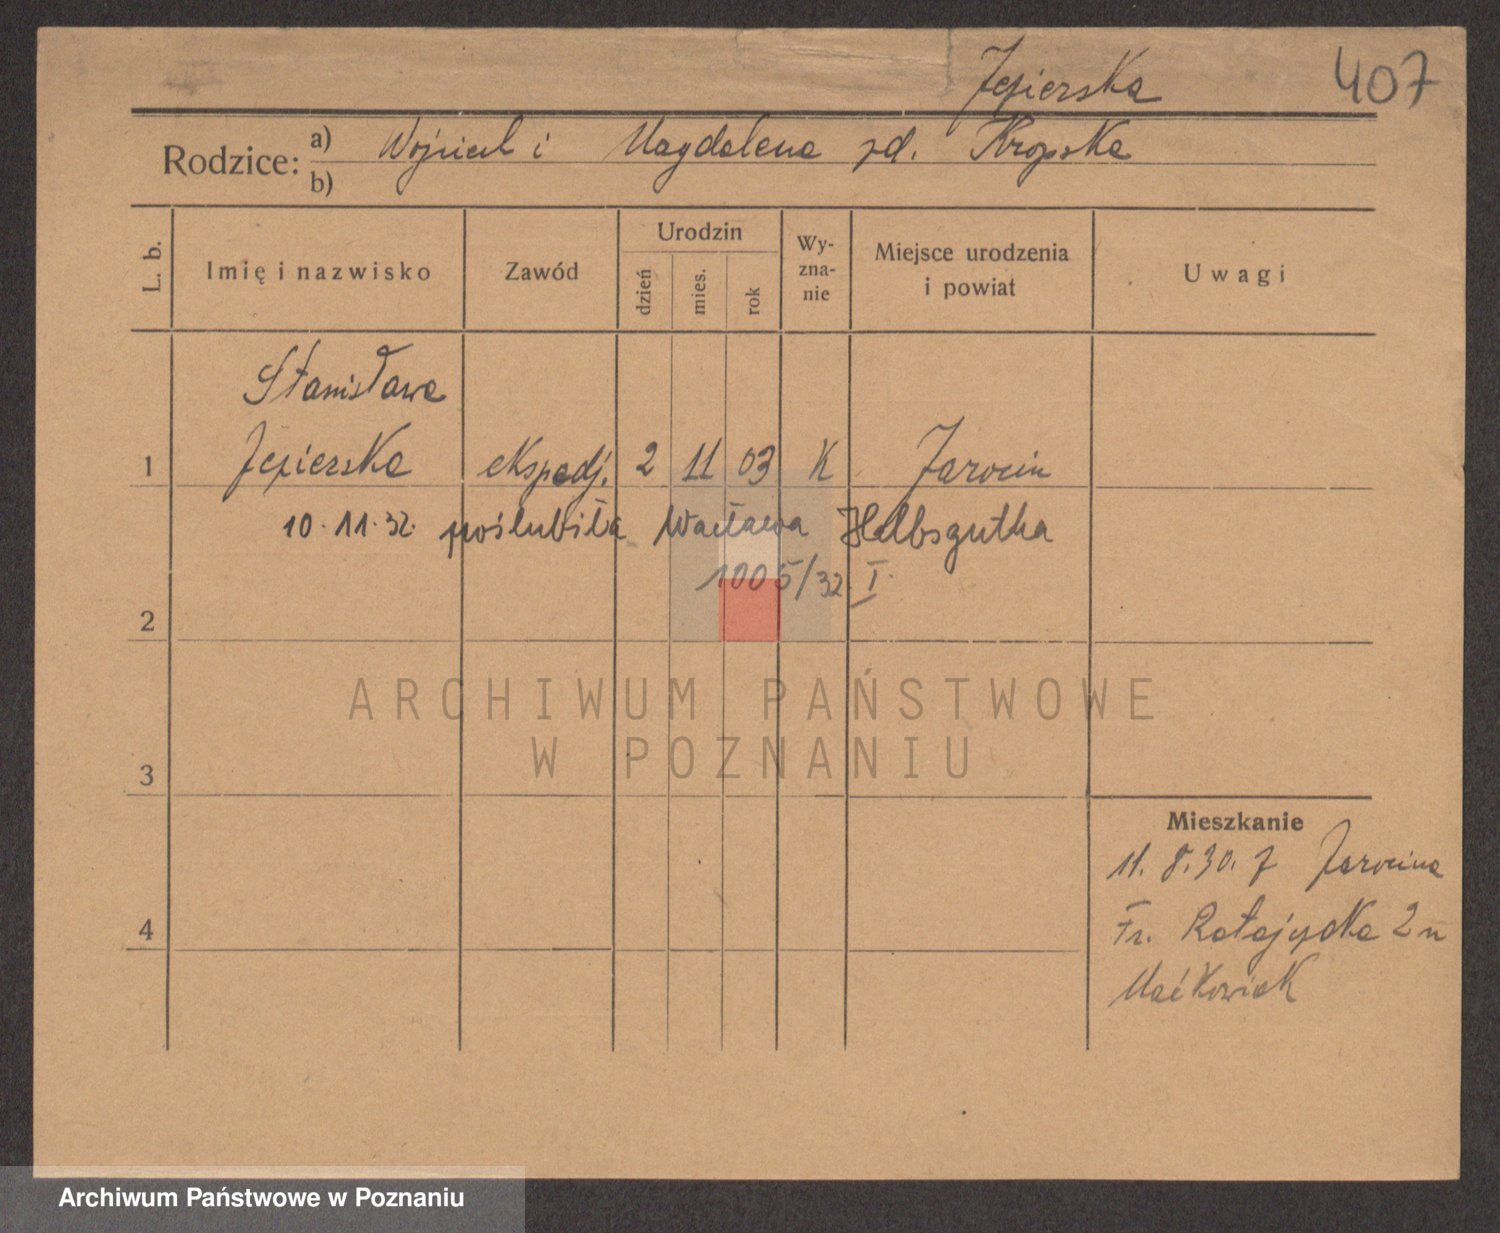 Jezierska
407
Rodzice: a) Wojciech i Magdalena zd. Kropska
b)
L. b.
Imię i nazwisko
Zawód
Urodzin
dzień
mies.
rok
Wy-
zna-
nie
Miejsce urodzenia
i powiat
Uwagi
Stanisława
1 Jezierska ekspedj. 2 11 03 K Jarocin
10.11.32. poślubiła Wacława Helbsgutha
1005/32 I.
2
ARCHIWUM PAŃSTWOWE
W POZNANIU
3
Mieszkanie
11. 8. 30. z Jarocina
Fr. Ratajczaka 2
4
Maćkowiak
Archiwum Państwowe w Poznaniu